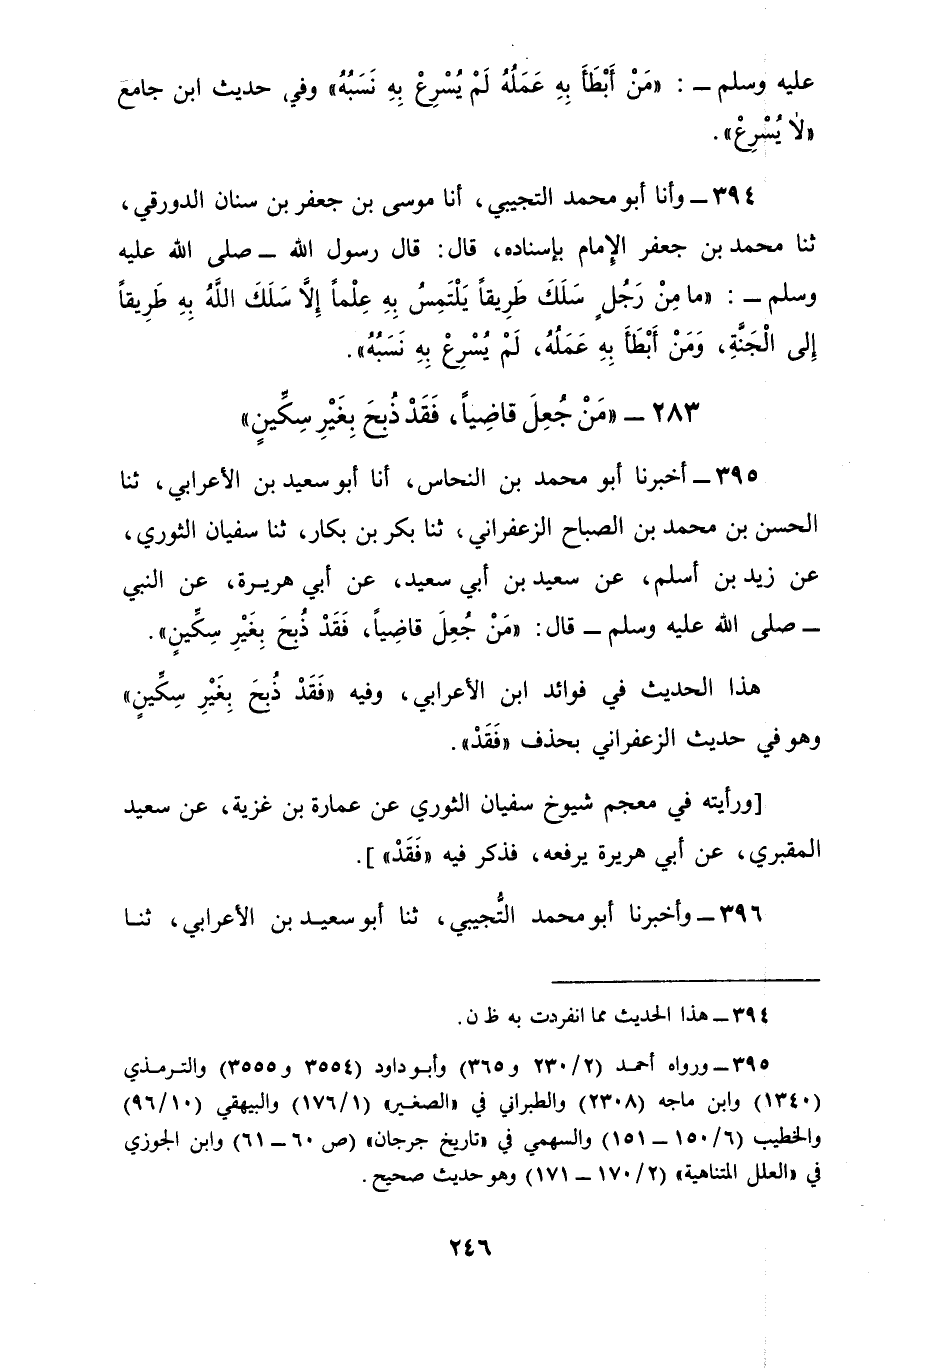 عليه وسلم ــ : «مَنْ أَبْطَأَ بِهِ عَمَلُهُ لَمْ يُسْرِعْ بِهِ نَسَبُهُ» وفي حديث ابن جامع
«لَا يُسْرِعْ».
٣٩٤ــ وأنا أبو محمد التجيبي، أنا موسى بن جعفر بن سنان الدورقي،
ثنا محمد بن جعفر الإِمام بإسناده، قال: قال رسول الله ــ صلى الله عليه
وسلم ــ : «ما مِنْ رَجُلٍ سَلَكَ طَرِيقاً يَلْتَمِسُ بِهِ عِلْماً إِلَّا سَلَكَ اللَّهُ بِهِ طَرِيقاً
إِلى الْجَنَّةِ، وَمَنْ أَبْطَأَ بِهِ عَمَلُهُ، لَمْ يُسْرِعْ بِهِ نَسَبُهُ».
٢٨٣ ــ «مَنْ جُعِلَ قاضِياً، فَقَدْ ذُبِحَ بِغَيْرِ سِكِّينٍ»
٣٩٥ــ أخبرنا أبو محمد بن النحاس، أنا أبو سعيد بن الأعرابي، ثنا
الحسن بن محمد بن الصباح الزعفراني، ثنا بكر بن بكار، ثنا سفيان الثوري،
عن زيد بن أسلم، عن سعيد بن أبي سعيد، عن أبي هريرة، عن النبي
ــ صلى الله عليه وسلم ــ قال: «مَنْ جُعِلَ قاضِياً، فَقَدْ ذُبِحَ بِغَيْرِ سِكِّينٍ».
هذا الحديث في فوائد ابن الأعرابي، وفيه «فَقَدْ ذُبِحَ بِغَيْرِ سِكِّينٍ»
وهو في حديث الزعفراني بحذف «فَقَدْ».
[ورأيته في معجم شيوخ سفيان الثوري عن عمارة بن غزية، عن سعيد
المقبري، عن أبي هريرة يرفعه، فذكر فيه «فَقَدْ»].
٣٩٦ــ وأخبرنا أبو محمد التُّجيبي، ثنا أبو سعيد بن الأعرابي، ثنا
٣٩٤ــ هذا الحديث مما انفردت به ظ ن.
٣٩٥ــ ورواه أحمد (٢/ ٢٣٠ و٣٦٥) وأبو داود (٣٥٥٤ و٣٥٥٥) والترمذي
(١٣٤٠) وابن ماجه (٢٣٠٨) والطبراني في «الصغير» (١/ ١٧٦) والبيهقي (١٠/ ٩٦)
والخطيب (٦/ ١٥٠ ــ ١٥١) والسهمي في «تاريخ جرجان» (ص ٦٠ ــ ٦١) وابن الجوزي
في «العلل المتناهية» (٢/ ١٧٠ ــ ١٧١) وهو حديث صحيح.
٢٤٦